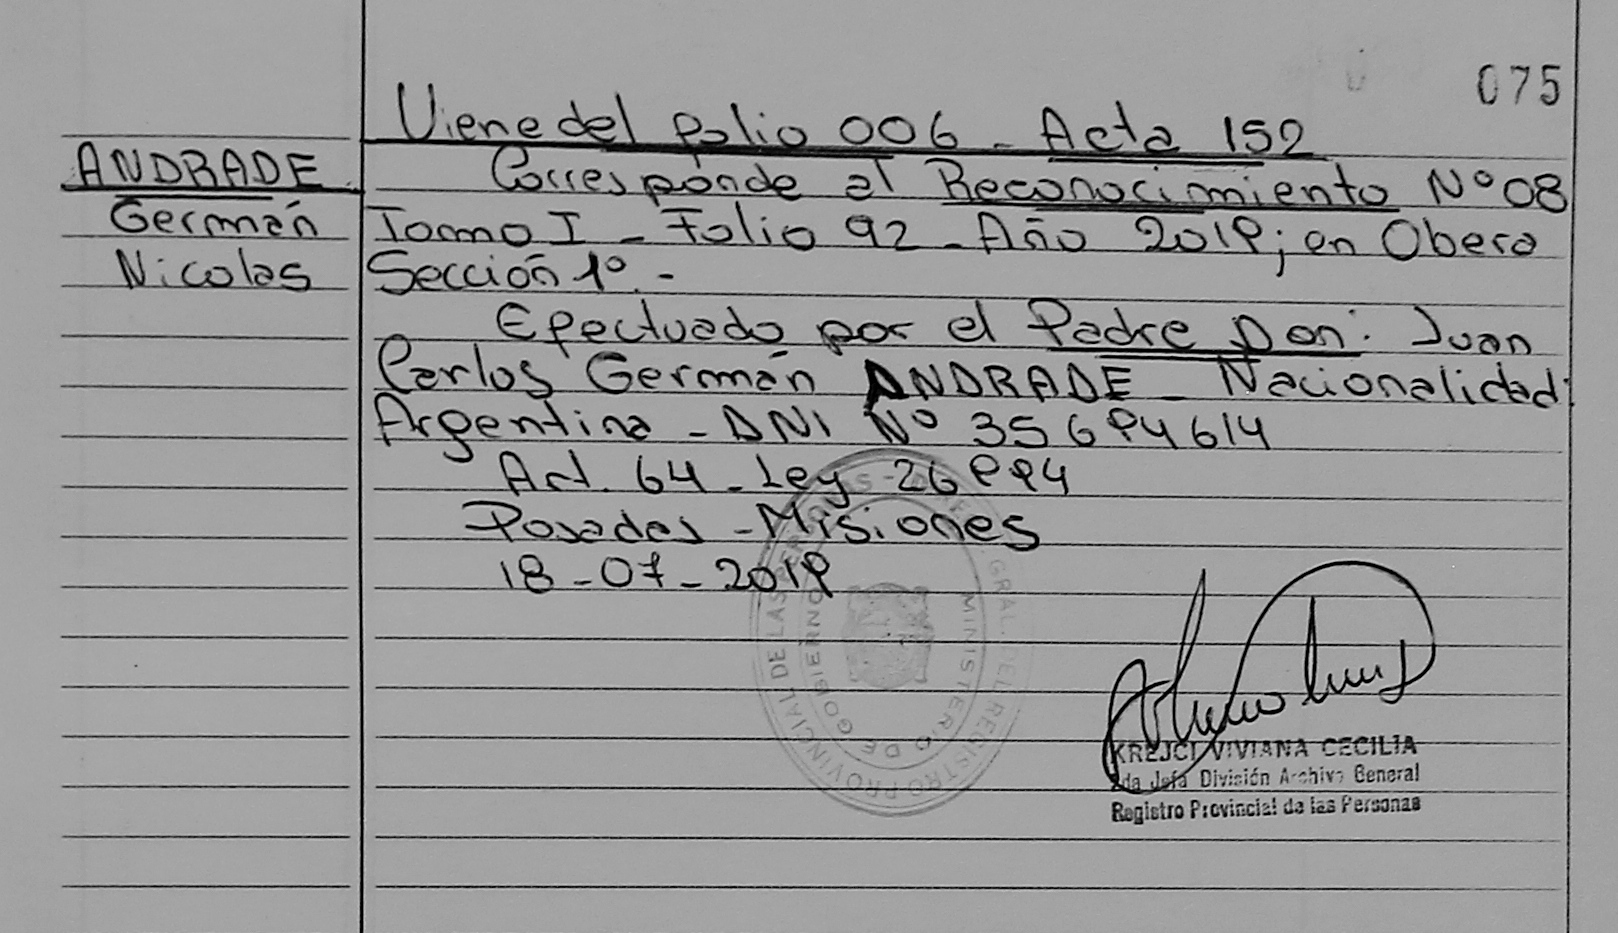 075
Viene del folio 006 - Acta 152
ANDRADE
Germán
Nicolas
Corresponde al Reconocimiento Nº 08
Tomo I - Folio 92 - Año 2019; en Obera
Sección 1º. -
Efectuado por el Padre Don: Juan
Carlos Germán ANDRADE - Nacionalidad:
Argentina - DNI Nº 35694614
Art. 64 - Ley 26994
Posadas - Misiones
18-07-2019
GRAL. DEL REGISTRO PROVINCIAL DE LAS PERSONAS
MINISTERIO DE GOBIERNO
KREJCI VIVIANA CECILIA
2da Jefa División Archivo General
Registro Provincial de las Personas